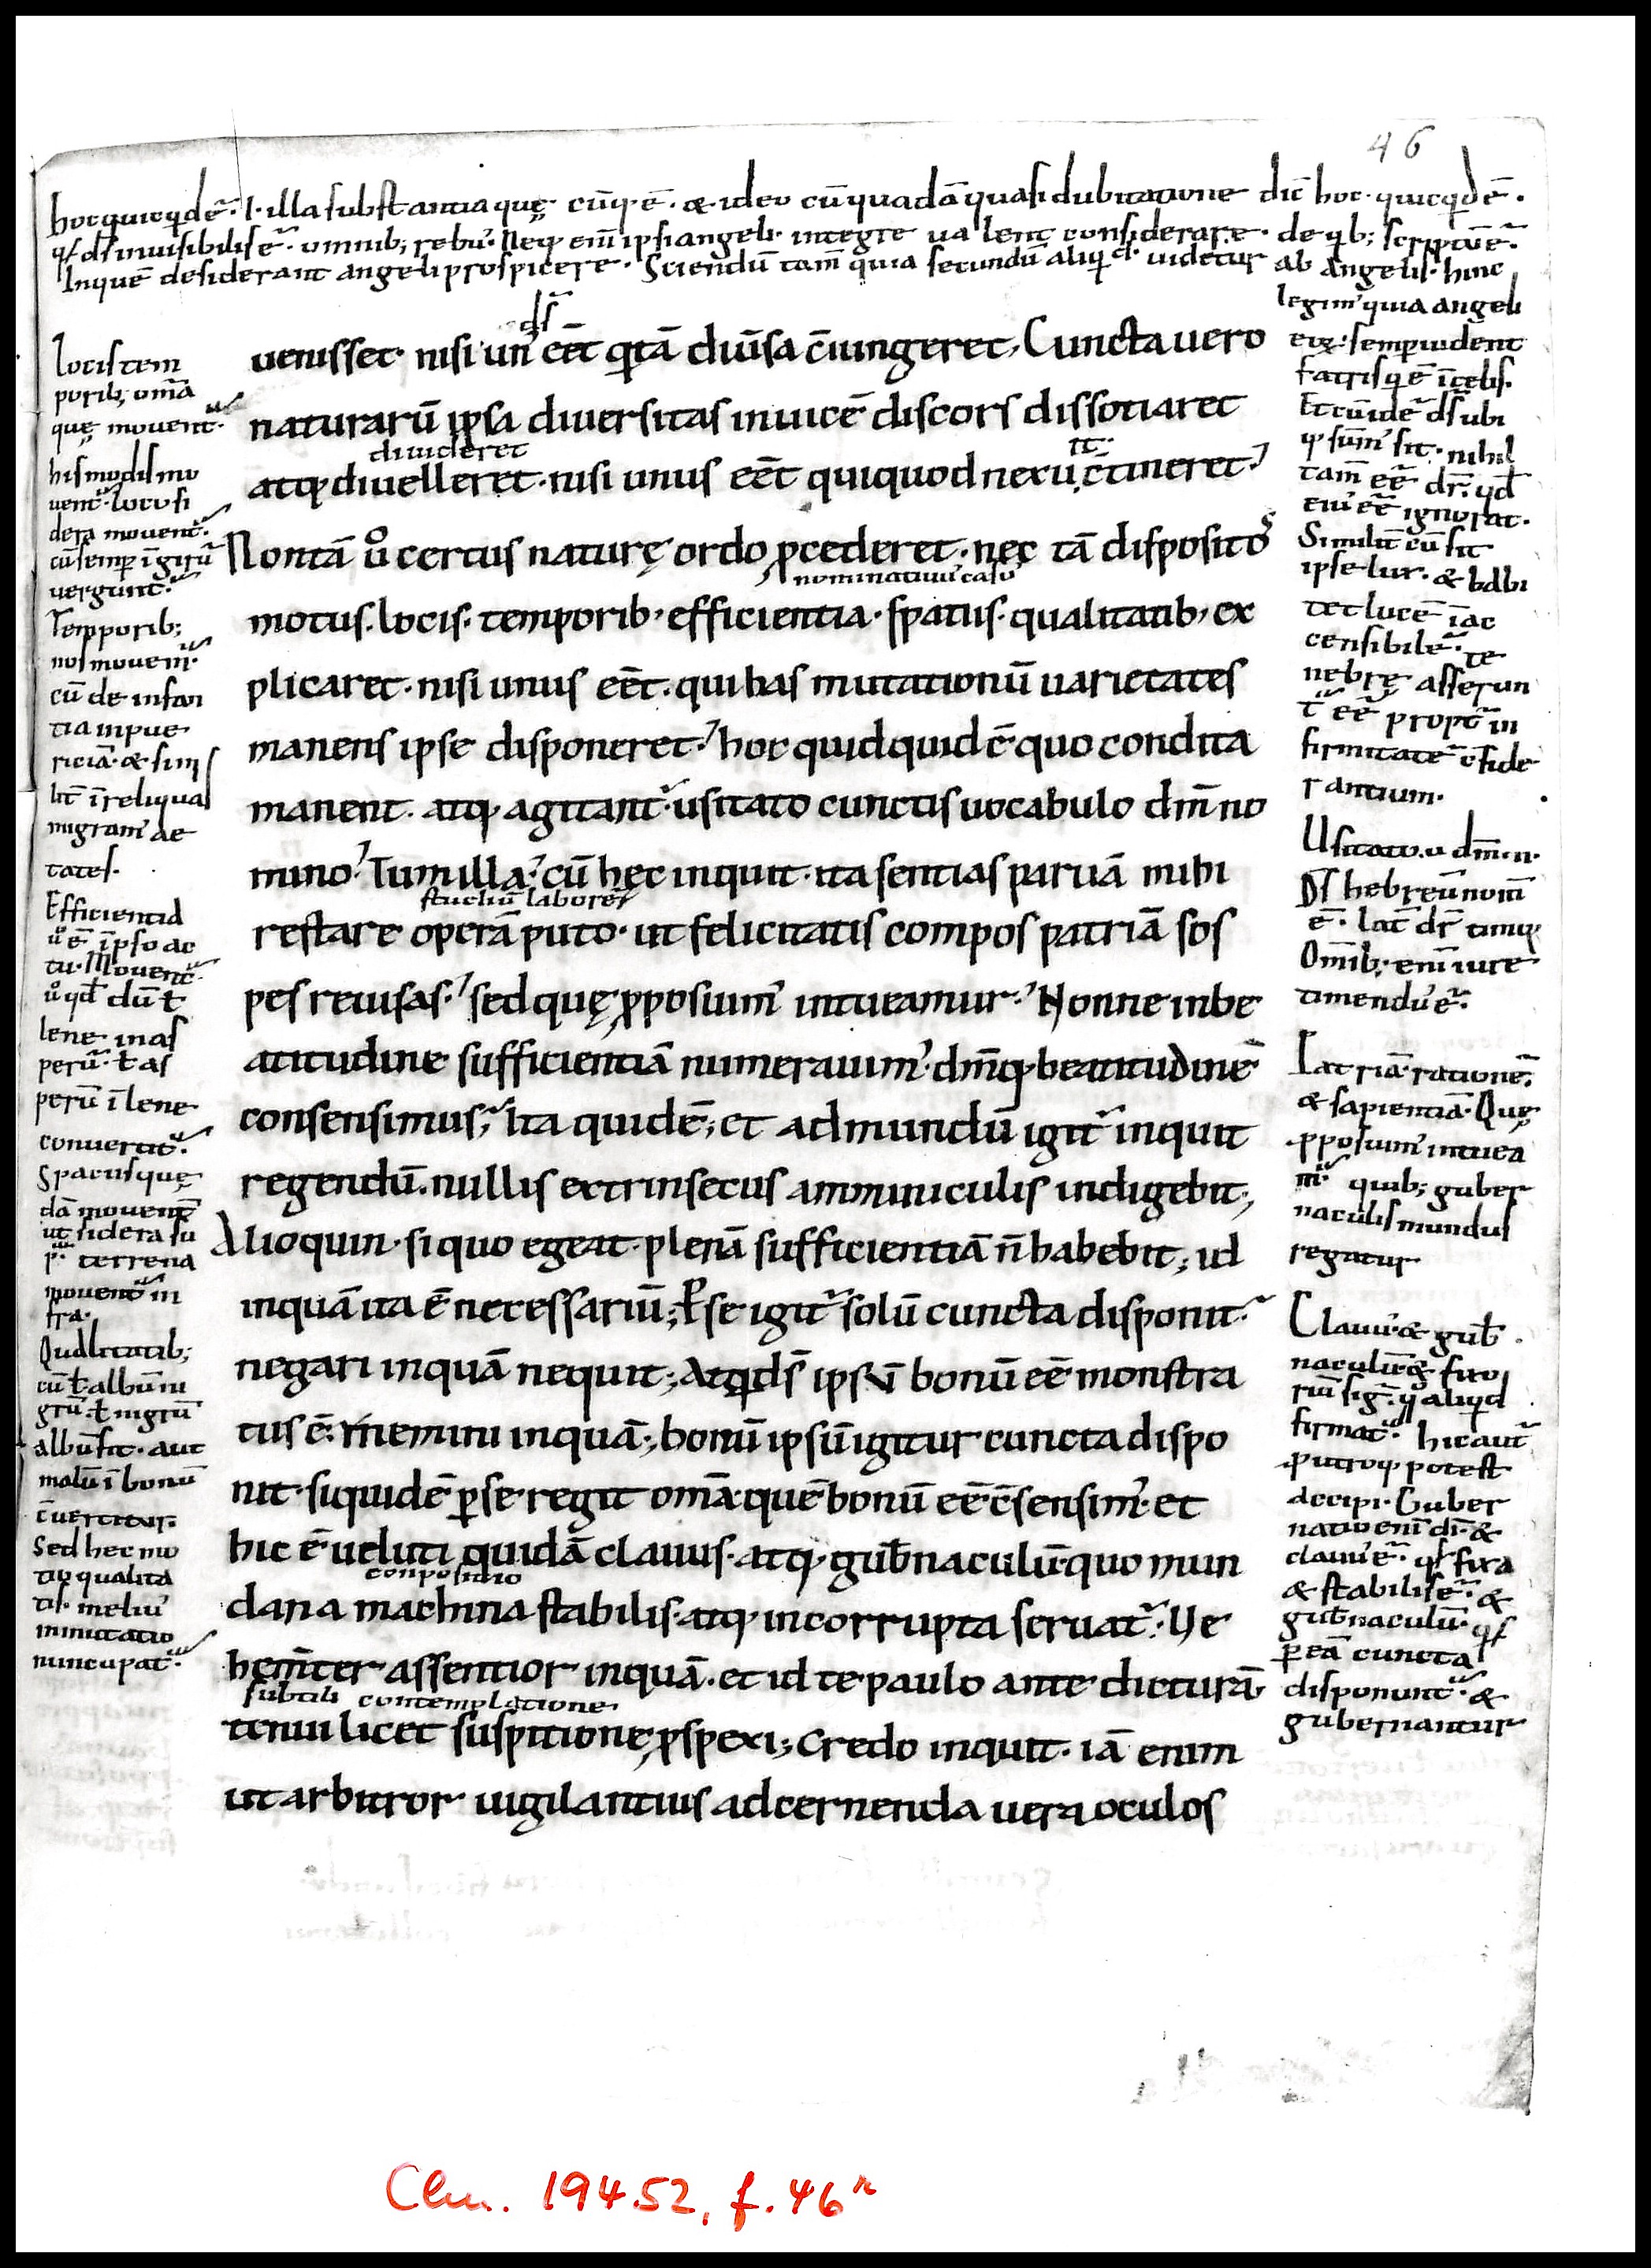 46
hoc quicqd ē. I. illa substantia quę cūq; ē. & ideo cū quadā quasi dubitatione dic̄ hoc quicqd ē.
qa ds inuisibilis ē omnib; rebus. Neq; enī ipsi angeli integre ualent considerare. de qb; scriptū ē.
Inquē desiderant angeli prospicere. Sciendū tam̄ quia secundū aliqd uidetur ab angelis. hinc
legim' quia angeli
ei' semp uident
Et cū idē ds ubi
ipse lux & habi
tet lucē īac
censibilē. te
nebrę asserun
t' eē propt' in
firmitatē c̄side
rantium.
Usitato. u. dm̄. n.
Ds hebreū nom̄
ē. lat̄ dr̄ timor
Om̄ib; enī iure
timendus ē.
Patriā rationē
& sapientiā. Quę
pposuim' intuea
m' quib; guber
naculis mundus
regatur
Clauus & gub̄
firmat'. hic aut̄
p utroq; potest
accipi. Guber
natio enī dī &
clauus ē. qa fixa
& stabilis ē. &
gub̄naculū. qa
p eā cuncta
disponunt' &
gubernantur
locis tem
porib; om̄a
quę mouent'
his modis mo
uent'. loco si
dera mouent'
cū semp ī girū
uergunt'
Temporib;
nos mouem'
cū de infan
tia in pue
riciā & simi
lit̄ ī reliquas
migram' ae
tates.
Efficientia
u̇ ē īpso ac
tu. Mouent'
u̇ qd dū ł
lene in as
perū. ł as
perū ī lene
conuertit'
Spatiis quę
dā mouent'
ut sidera su
p' terrena
mouent' in
fra.
Qualitatib;
cū ł albū ni
grū. ł nigrū
albū fit. aut
malū ī bonū
c̄uertitur.
Sed hec mo
tio qualita
tis. melius
inmutatio
nuncupat'
ds
uenisset. nisi un' eēt q tā diuersa c̄iungeret, Cuncta uero
naturarū ipsa diuersitas inuicē discors dissotiaret
diuideret
atq; diuelleret. nisi unus eēt qui quod nexuit c̄tineret.
Non tā u̇ certus naturę ordo pcederet. nec tā dispositos
nominatiuus casus
motus. locis. temporib; efficientia. spatiis. qualitatib; ex
plicaret. nisi unus eēt. qui has mutationū uarietates
manens ipse disponeret. hoc quidquid ē quo condita
manent. atq; agitant' usitato cunctis uocabulo dm̄ no
mino. Tum illa. cū hęc inquit. ita sentias paruā mihi
studiū laborē
restare operā puto. ut felicitatis compos patriā sos
pes reuisas. sed quę pposuim' intueamur. Nonne in be
atitudine sufficientiā numerauim'. dm̄q; beatitudinē
consensimus; Ita quidē; et ad mundū igit' inquit
regendū. nullis extrinsecus amminiculis indigebit;
Alioquin. si quo egeat. plenā sufficientiā n̄ habebit; id
inquā ita ē necessariū; p se igit' solū cuncta disponit.
negari inquā nequit; Atq; ds ipsū bonū eē monstra
tus ē. memini inquā; bonū ipsū igitur cuncta dispo
nit. siquidē p se regit om̄a quē bonū eē c̄sensim'. et
hic ē ueluti quidā clauus. atq; gub̄naculū. quo mun
conpositio
dana machina stabilis. atq; incorrupta seruat'. Ue
hem̄ter assentior inquā. et id te paulo ante dicturā
subtili contemplatione
tenui licet suspitione pspexi; Credo inquit. iā enim
ut arbitror uigilantius ad cernenda uera oculos
Clm. 19452, f. 46r